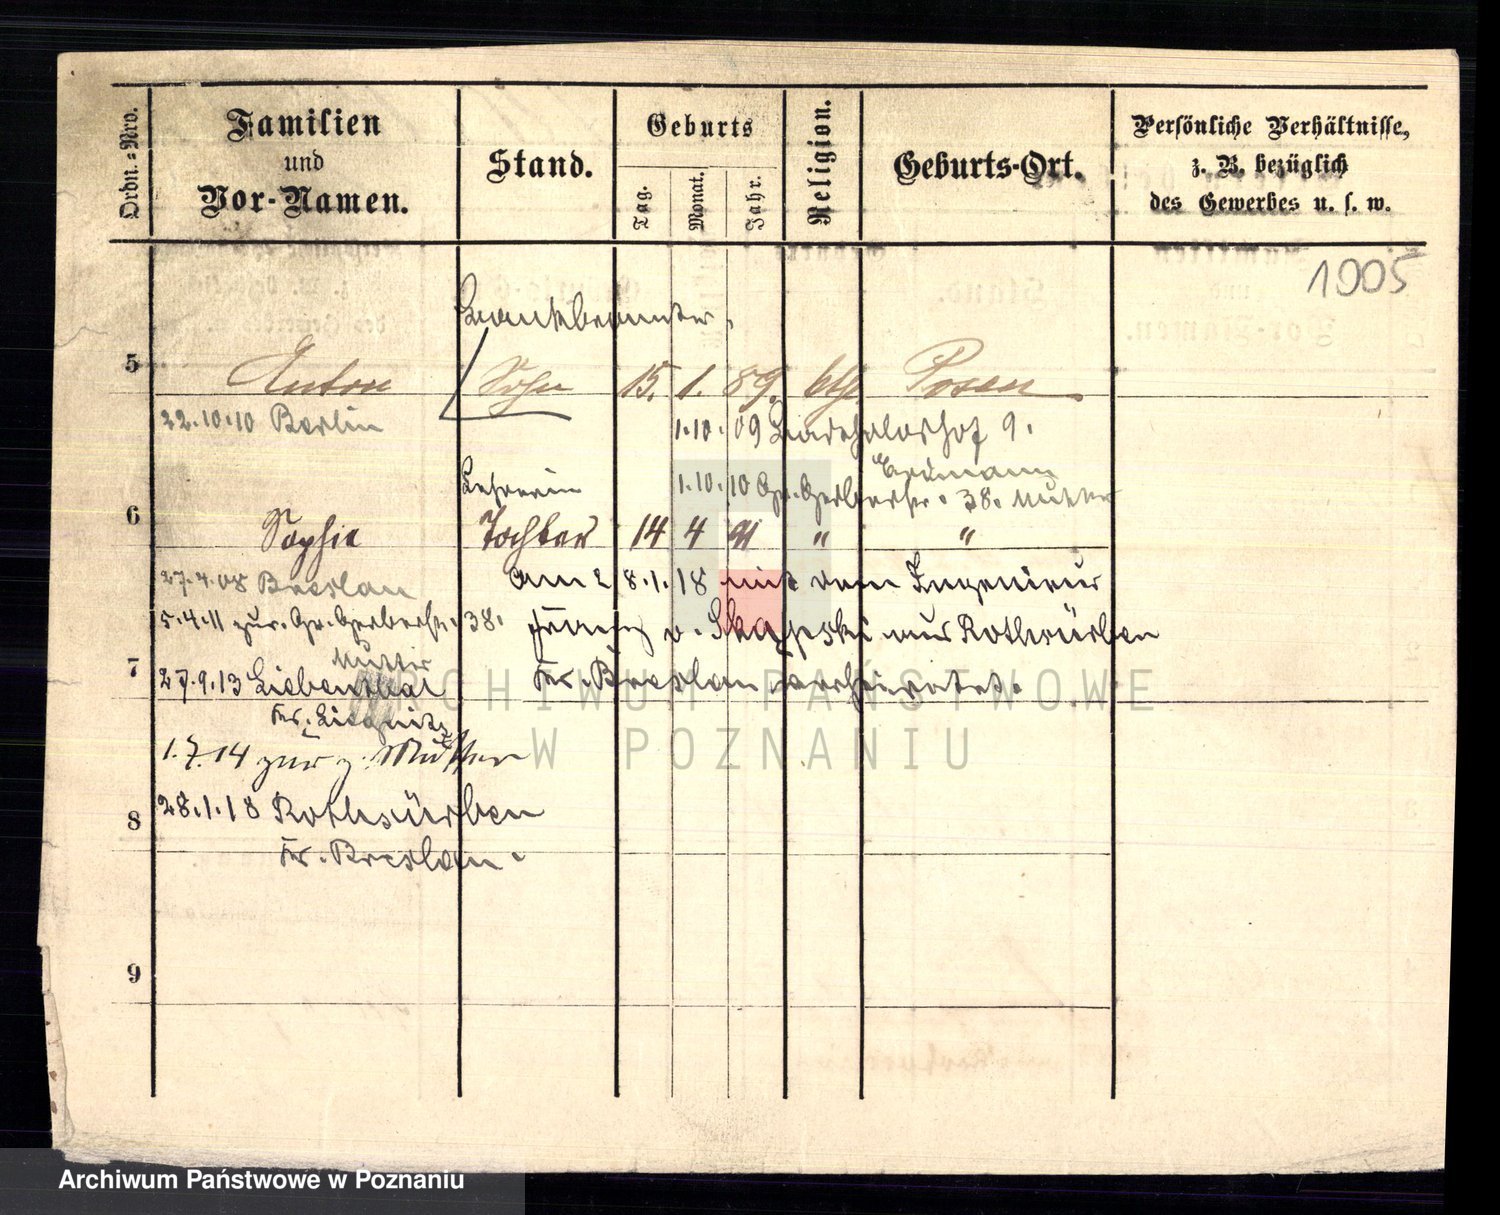 Ordn.=Nro.
Familien und Vor-Namen.
Stand.
Geburts
Tag.
Monat.
Jahr.
Religion.
Geburts-Ort.
Persönliche Verhältnisse, z. B. bezüglich des Gewerbes u. s. w.
1005
Bankbeamter
5 Anton Sohn 15. 1. 89. kth. Posen
22.10.10 Berlin
1.10.09 9.
Lehrerin 1.10.10 Gr. Gerberstr. 38. Mutter
6 Sophie Tochter 14 4 91 " "
27.4.08 Breslau
am 28.1.18 mit dem Ingenieur
5.4.11 zur. Gr. Gerberstr. 38.
Mutter
Franz v. aus Rothsürben
7
27.9.13 Liebenthal
Kr. Breslau verheiratet.
Kr. Liegnitz
1.7.14 zur z. Mutter
8
28.1.18 Rothsürben
Kr. Breslau.
9
ARCHIWUM PAŃSTWOWE
W POZNANIU
Archiwum Państwowe w Poznaniu